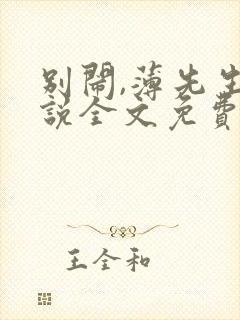 别鬧,薄先生
說全文免費
王全和